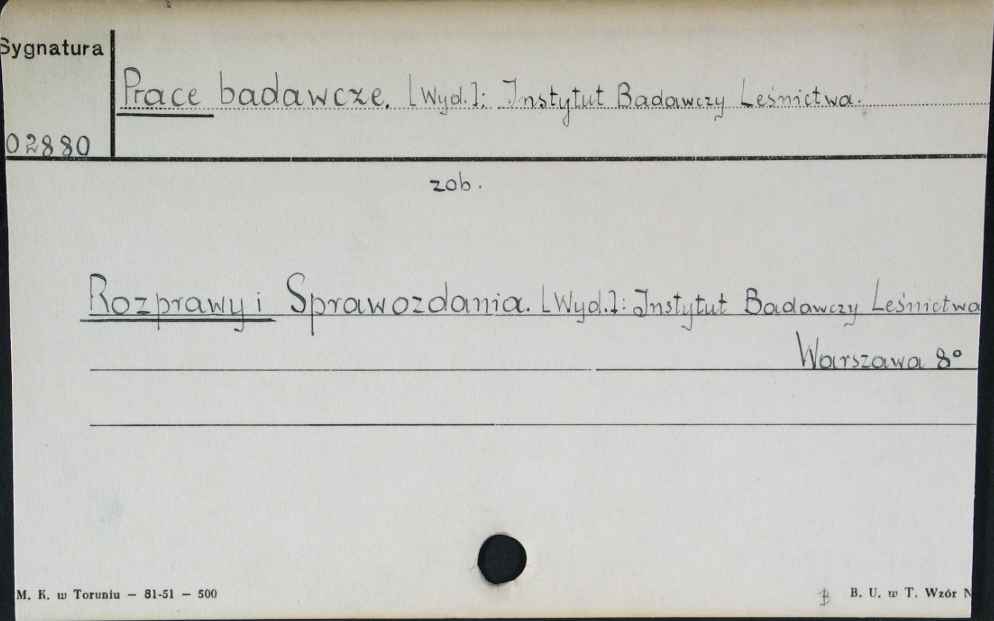 Sygnatura
Prace badawcze. [Wyd.]: Instytut Badawczy Leśnictwa.
02880
zob.
Rozprawy i Sprawozdania. [Wyd.]: Instytut Badawczy Leśnictwa
Warszawa 8°
M. K. w Toruniu — 81-51 — 500
B. U. w T. Wzór N